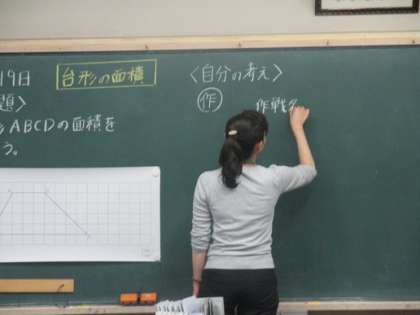 19日
台形の面積
題〉
ABCDの面積を
う。
〈自分の考え〉
作
作戦名